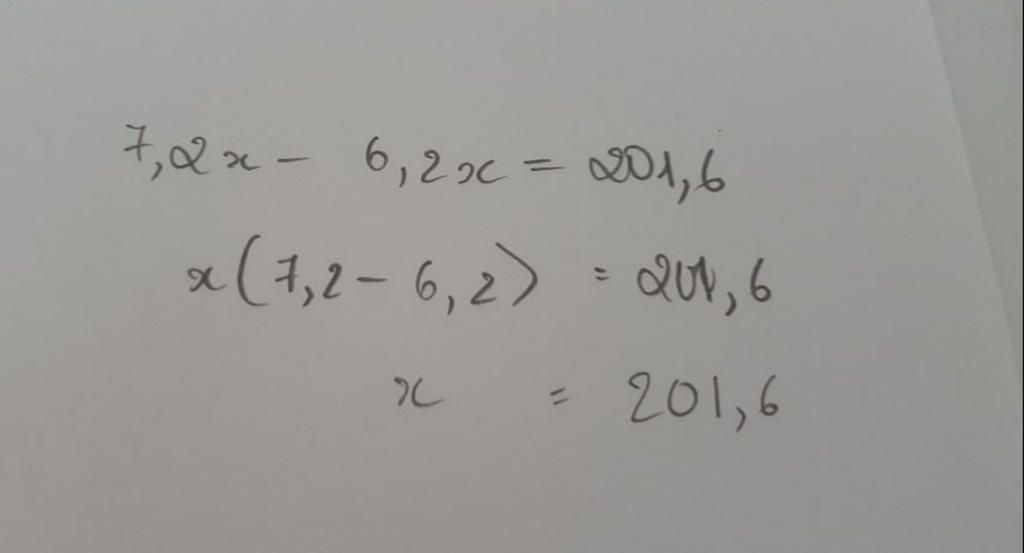 7,2x - 6,2x = 201,6
x(7,2 - 6,2) = 201,6
x = 201,6